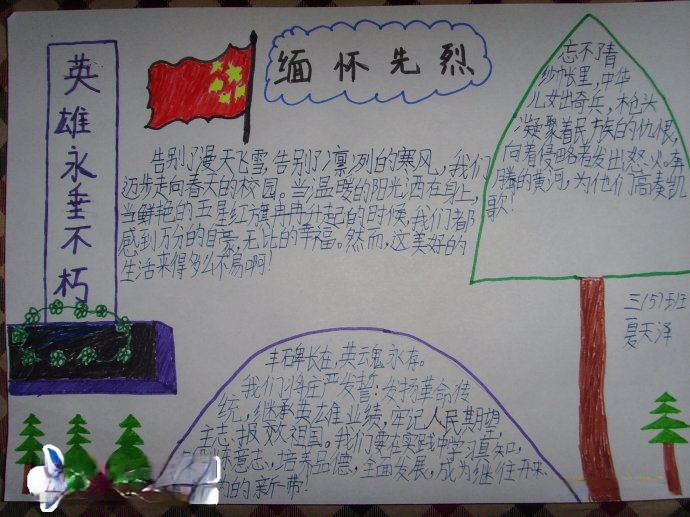 英雄永垂不朽
缅怀先烈
告别了漫天飞雪,告别了凛冽的寒风,我们
迈步走向春天的校园。当温暖的阳光洒在身上,
当鲜艳的五星红旗冉冉升起的时候,我们都
感到万分的自豪,无比的幸福。然而,这美好的
生活来得多么不易啊!
忘不了青
纱帐里,中华
儿女出奇兵,枪头
凝聚着民族的仇恨,
向着侵略者发出怒火。奔
腾的黄河,为他们高奏凯
歌!
三(5)班
夏天泽
丰石碑长在,英云魂永存。
我们将庄严发誓:发扬革命传
统,继承英雄业绩,牢记人民期望,
立志报效祖国。我们要在实践中学习真知,
意志,培养品德,全面发展,成为继往开来
的新一带!